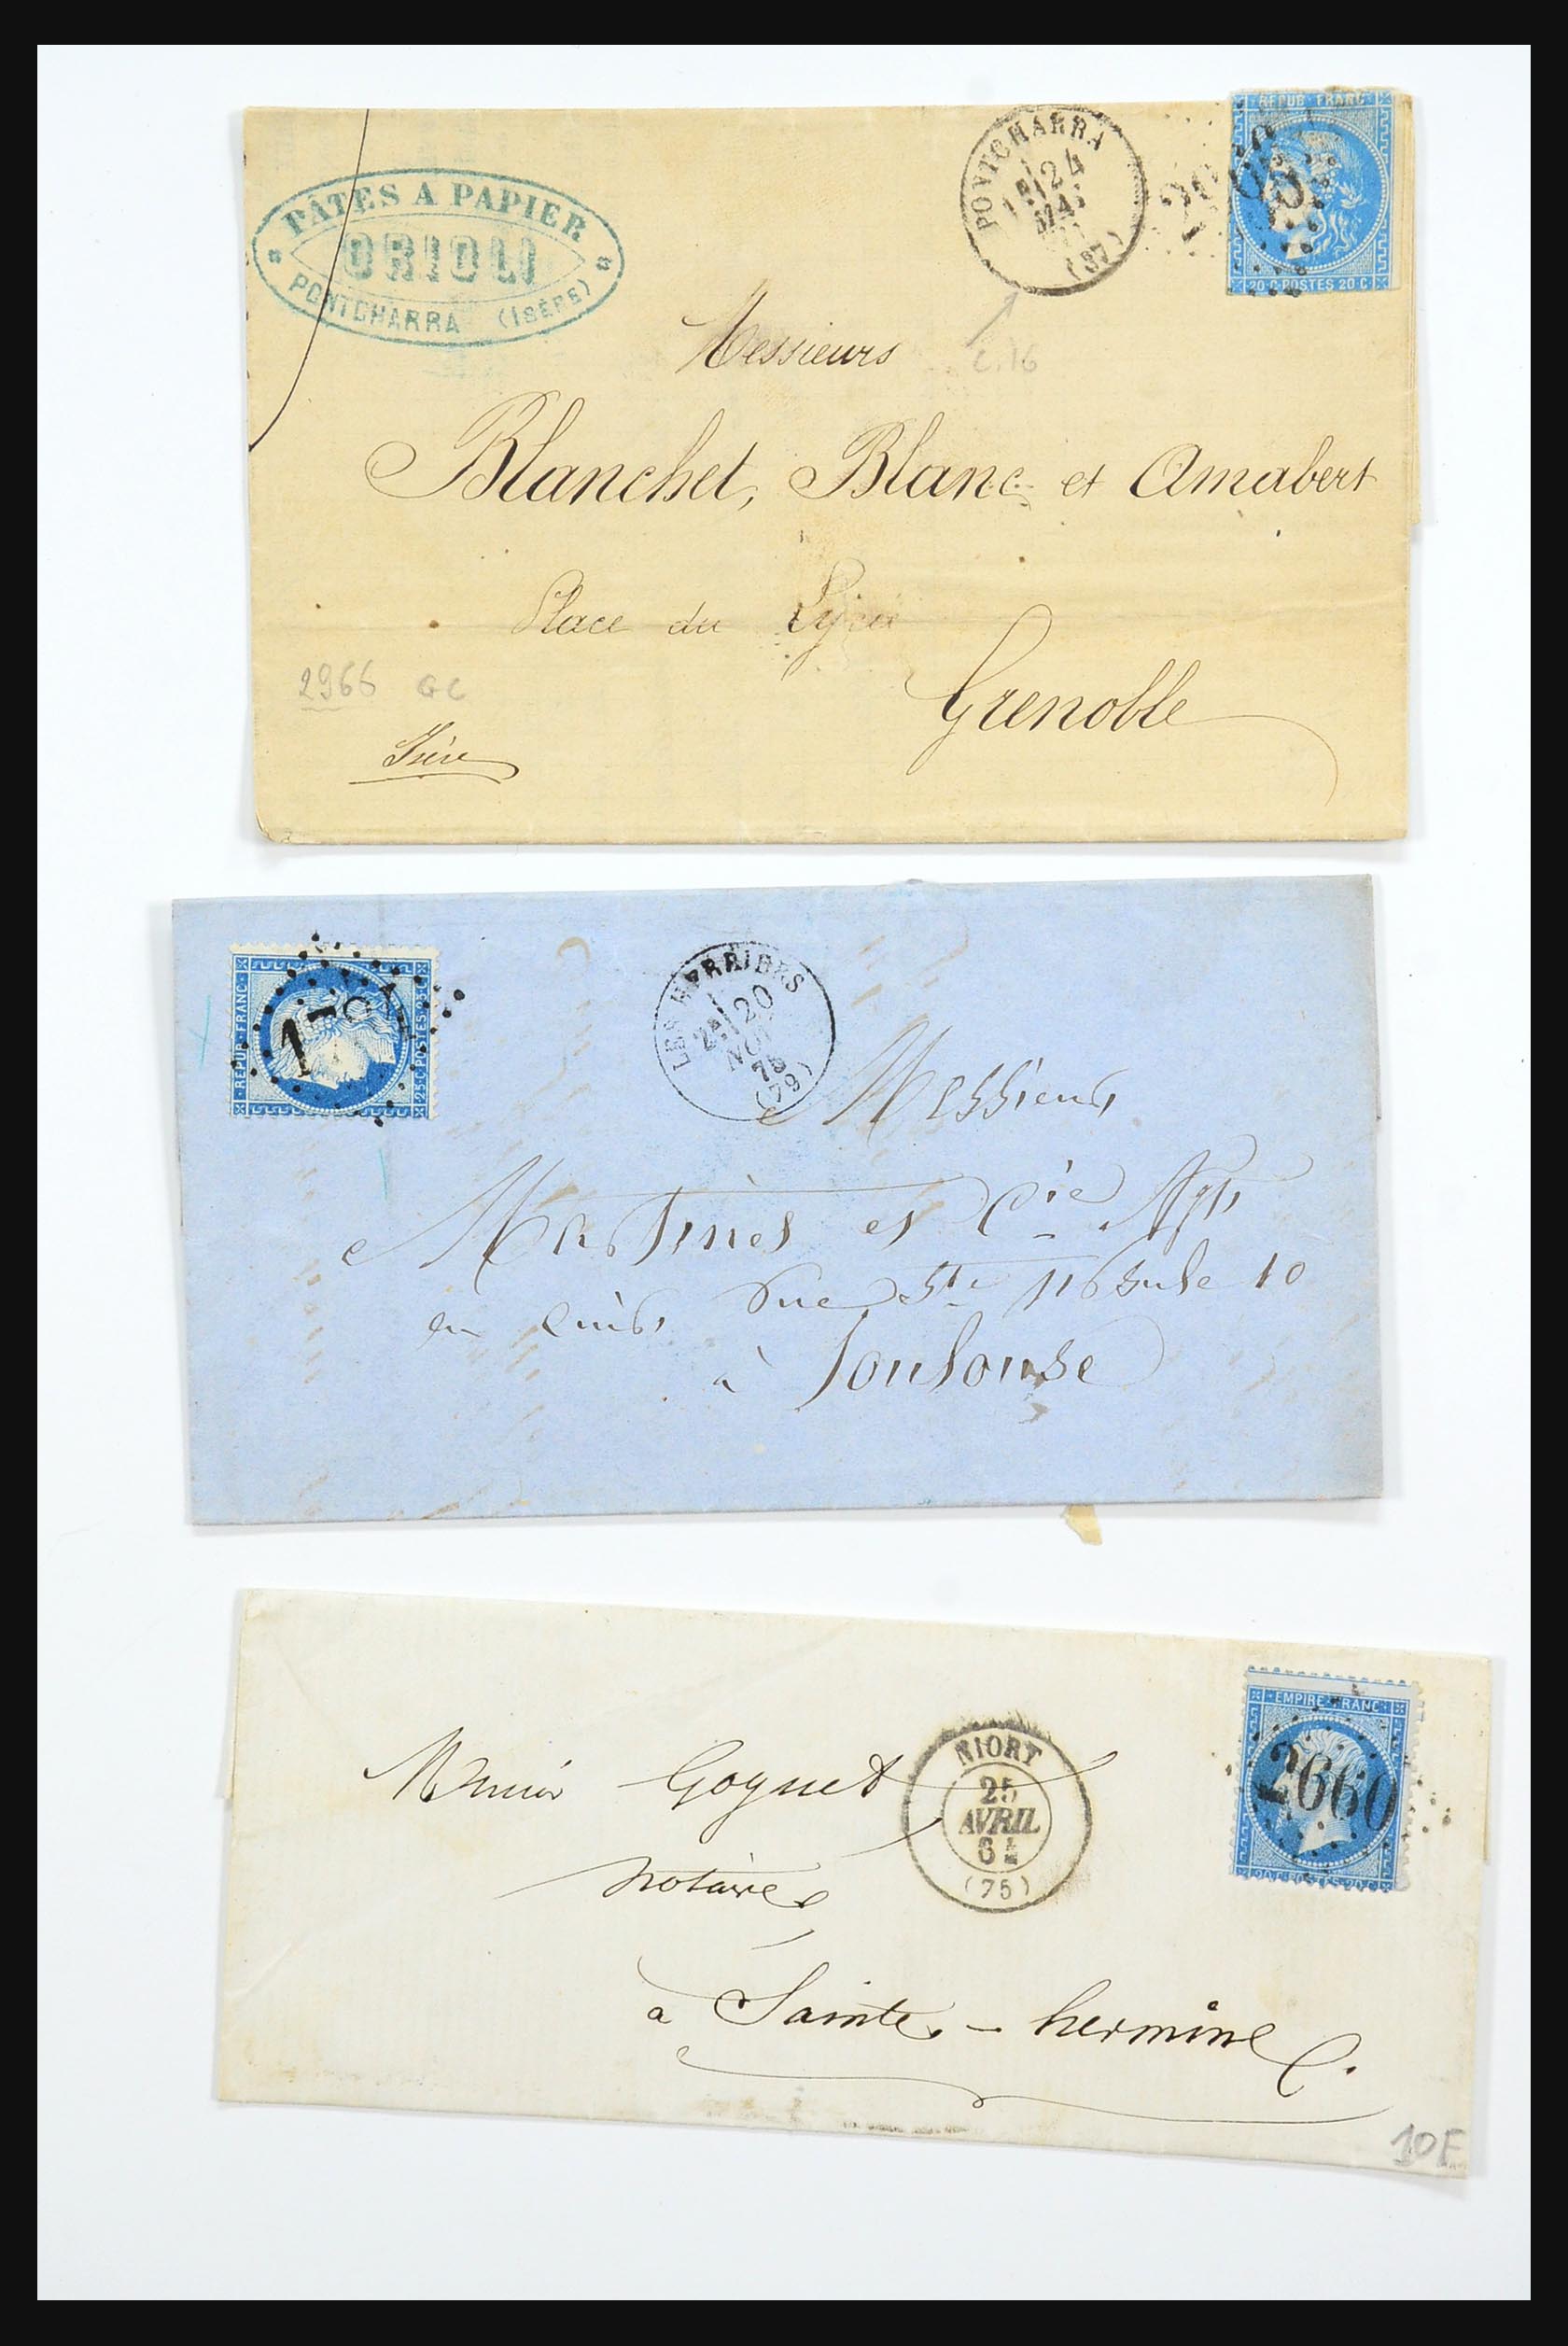 PÂTES A PAPIER
ORIOLI
PONTCHARRA (ISÈRE)
PONTCHARRA
24
MAI
(37)
REPUB · FRANC
20 C · POSTES 20 C
Messieurs
C.16
Blanchet, Blanc et Amabert
Place du Lycée
2966 GC
Grenoble
Isère
REPUB · FRANC
25 · C · POSTES · 25 · C
LES HERBIERS
2E 20
NOV
75
(79)
Messieurs
Martines et Cie Agts
en cuirs, Rue Ste Ursule 10
à Toulouse
EMPIRE · FRANC
2660
20 · C · POSTES · 20 · C
NIORT
25
AVRIL
64
(75)
Goguet
notaire
à Sainte-hermine
10F